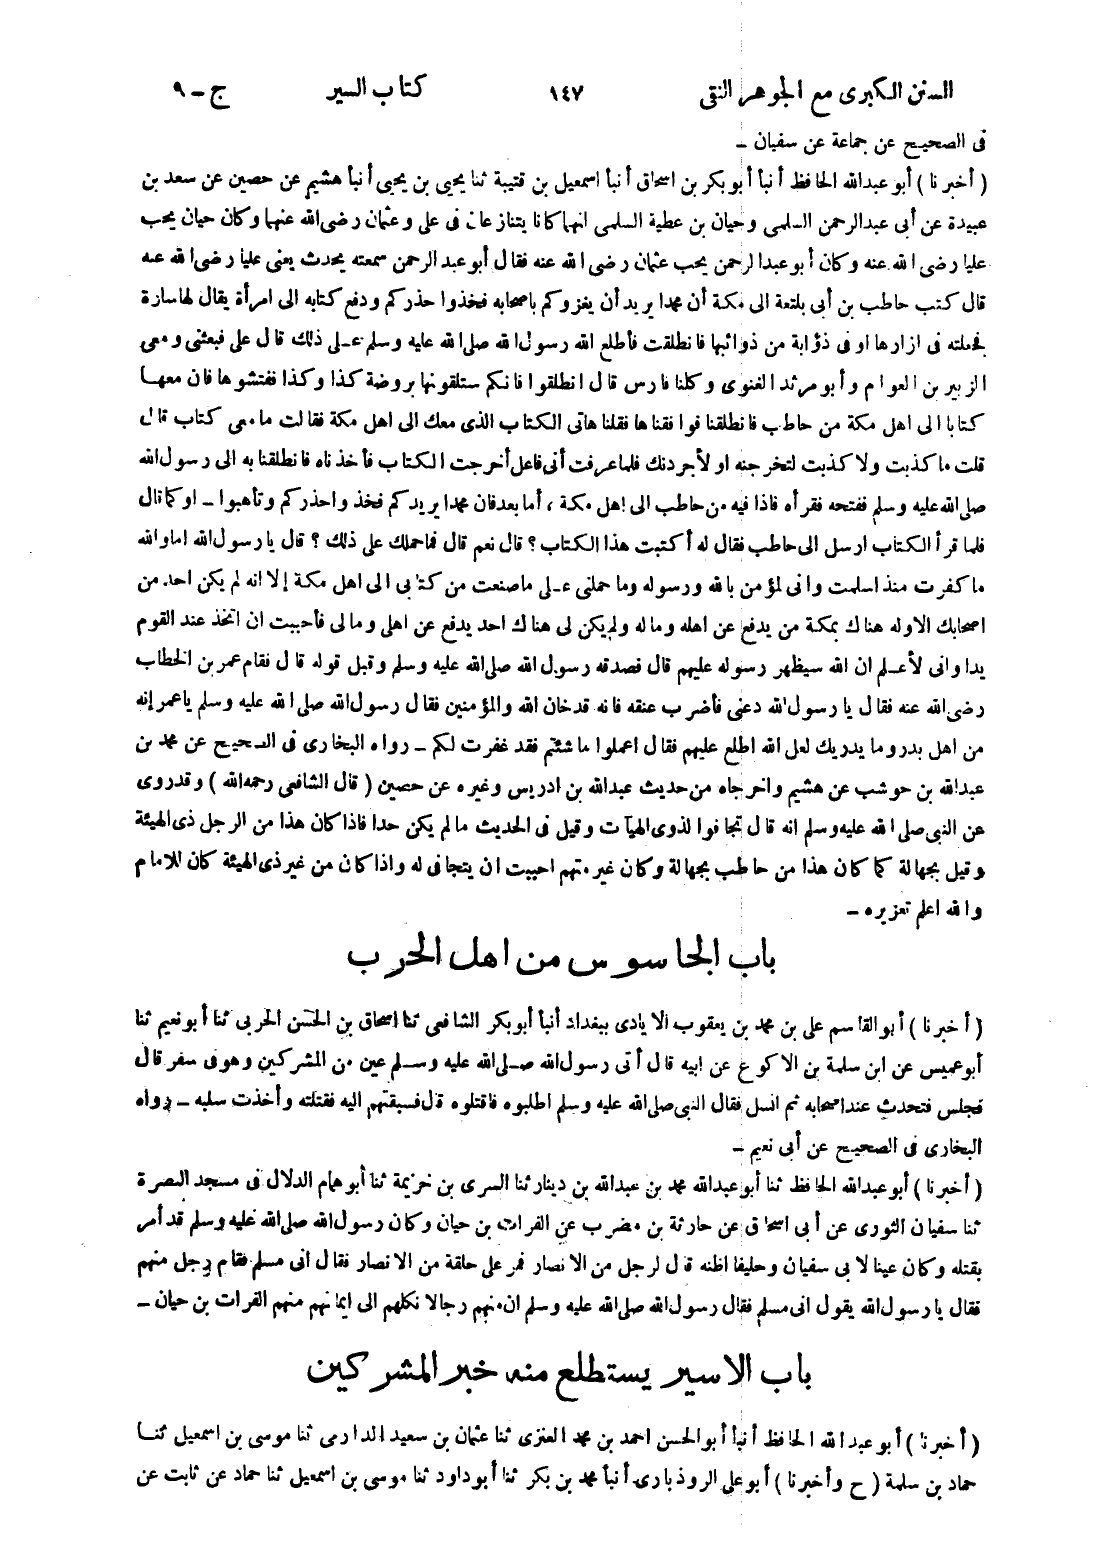 السنن الكبرى مع الجوهر النقى ١٤٧ كتاب السير ج - ٩
فى الصحيح عن جماعة عن سفيان -
(أخبرنا) أبو عبدالله الحافظ أنبأ أبوبكر بن اسحاق أنبأ اسمعيل بن قتيبة ثنا يحيى بن يحيى أنبأ هشيم عن حصين عن سعد بن
عبيدة عن أبى عبدالرحمن السلمى وحيان بن عطية السلمى انهما كانا يتنازعان فى على وعثمان رضى الله عنهما وكان حيان يحب
عليا رضى الله عنه وكان أبو عبدالرحمن يحب عثمان رضى الله عنه فقال أبو عبد الرحمن سمعته يحدث يعنى عليا رضى الله عنه
قال كتب حاطب بن أبى بلتعة الى مكة أن محمدا يريد أن يغزوكم باصحابه فخذوا حذركم ودفع كتابه الى امرأة يقال لها سارة
فجعلته فى ازارها او فى ذؤابة من ذوائبها فانطلقت فأطلع الله رسول الله صلى الله عليه وسلم على ذلك قال على فبعثنى ومعى
الزبير بن العوام وأبو مرثد الغنوى وكلنا فارس قال انطلقوا فانكم ستلقونها بروضة كذا وكذا ففتشوها فان معها
كتابا الى اهل مكة من حاطب فانطلقنا فوافقناها فقلنا هاتى الكتاب الذى معك الى اهل مكة فقالت ما معى كتاب قال
قلت ما كذبت ولا كذبت لتخرجنه او لأجردنك فلما عرفت أنى فاعل أخرجت الكتاب فأخذناه فانطلقنا به الى رسول الله
صلى الله عليه وسلم ففتحه فقرأه فاذا فيه من حاطب الى اهل مكة ، أما بعد فان محمدا يريدكم فخذوا حذركم وتأهبوا - او كما قال
فلما قرأ الكتاب ارسل الى حاطب فقال له أكتبت هذا الكتاب؟ قال نعم قال فما حملك على ذلك؟ قال يا رسول الله اما والله
ما كفرت منذ اسلمت وانى لمؤمن بالله ورسوله وما حملنى على ما صنعت من كتابى الى اهل مكة إلا انه لم يكن احد من
اصحابك الا وله هناك بمكة من يدفع عن اهله وماله ولم يكن لى هناك احد يدفع عن اهلى ومالى فأحببت ان اتخذ عند القوم
يدا وانى لأعلم ان الله سيظهر رسوله عليهم قال فصدقه رسول الله صلى الله عليه وسلم وقبل قوله قال فقام عمر بن الخطاب
رضى الله عنه فقال يا رسول الله دعنى فأضرب عنقه فانه قد خان الله والمؤمنين فقال رسول الله صلى الله عليه وسلم يا عمر إنه
من اهل بدر وما يدريك لعل الله اطلع عليهم فقال اعملوا ما شئتم فقد غفرت لكم - رواه البخارى فى الصحيح عن محمد بن
عبدالله بن حوشب عن هشيم واخرجاه من حديث عبدالله بن ادريس وغيره عن حصين (قال الشافعى رحمه الله) وقد روى
عن النبى صلى الله عليه وسلم انه قال تجافوا لذوى الهيآت وقيل فى الحديث ما لم يكن حدا فاذا كان هذا من الرجل ذى الهيئة
وقيل بجهالة كما كان هذا من حاطب بجهالة وكان غير متهم احببت ان يتجافى له واذا كان من غير ذى الهيئة كان للامام
والله اعلم تعزيره -
باب الجاسوس من اهل الحرب
(أخبرنا) أبو القاسم على بن محمد بن يعقوب الايادى ببغداد أنبأ أبوبكر الشافعى ثنا اسحاق بن الحسن الحربى ثنا أبو نعيم ثنا
أبو عميس عن ابن سلمة بن الاكوع عن ابيه قال أتى رسول الله صلى الله عليه وسلم عين من المشركين وهو فى سفر قال
فجلس فتحدث عند اصحابه ثم انسل فقال النبى صلى الله عليه وسلم اطلبوه فاقتلوه قال فسبقتهم اليه فقتلته وأخذت سلبه - رواه
البخارى فى الصحيح عن أبى نعيم -
(أخبرنا) أبو عبدالله الحافظ ثنا أبو عبدالله محمد بن عبدالله بن دينار ثنا السرى بن خزيمة ثنا أبو همام الدلال فى مسجد البصرة
ثنا سفيان الثورى عن أبى اسحاق عن حارثة بن مضرب عن الفرات بن حيان وكان رسول الله صلى الله عليه وسلم قد أمر
بقتله وكان عينا لابى سفيان وحليفا اظنه قال لرجل من الانصار فمر على حلقة من الانصار فقال انى مسلم فقام رجل منهم
فقال يا رسول الله يقول انى مسلم فقال رسول الله صلى الله عليه وسلم ان منهم رجالا نكلهم الى ايمانهم منهم الفرات بن حيان -
باب الاسير يستطلع منه خبر المشركين
(أخبرنا) أبو عبدالله الحافظ أنبأ أبو الحسن احمد بن محمد العنزى ثنا عثمان بن سعيد الدارمى ثنا موسى بن اسمعيل ثنا
حماد بن سلمة (ح وأخبرنا) أبو على الروذبارى أنبأ محمد بن بكر ثنا أبو داود ثنا موسى بن اسمعيل ثنا حماد عن ثابت عن